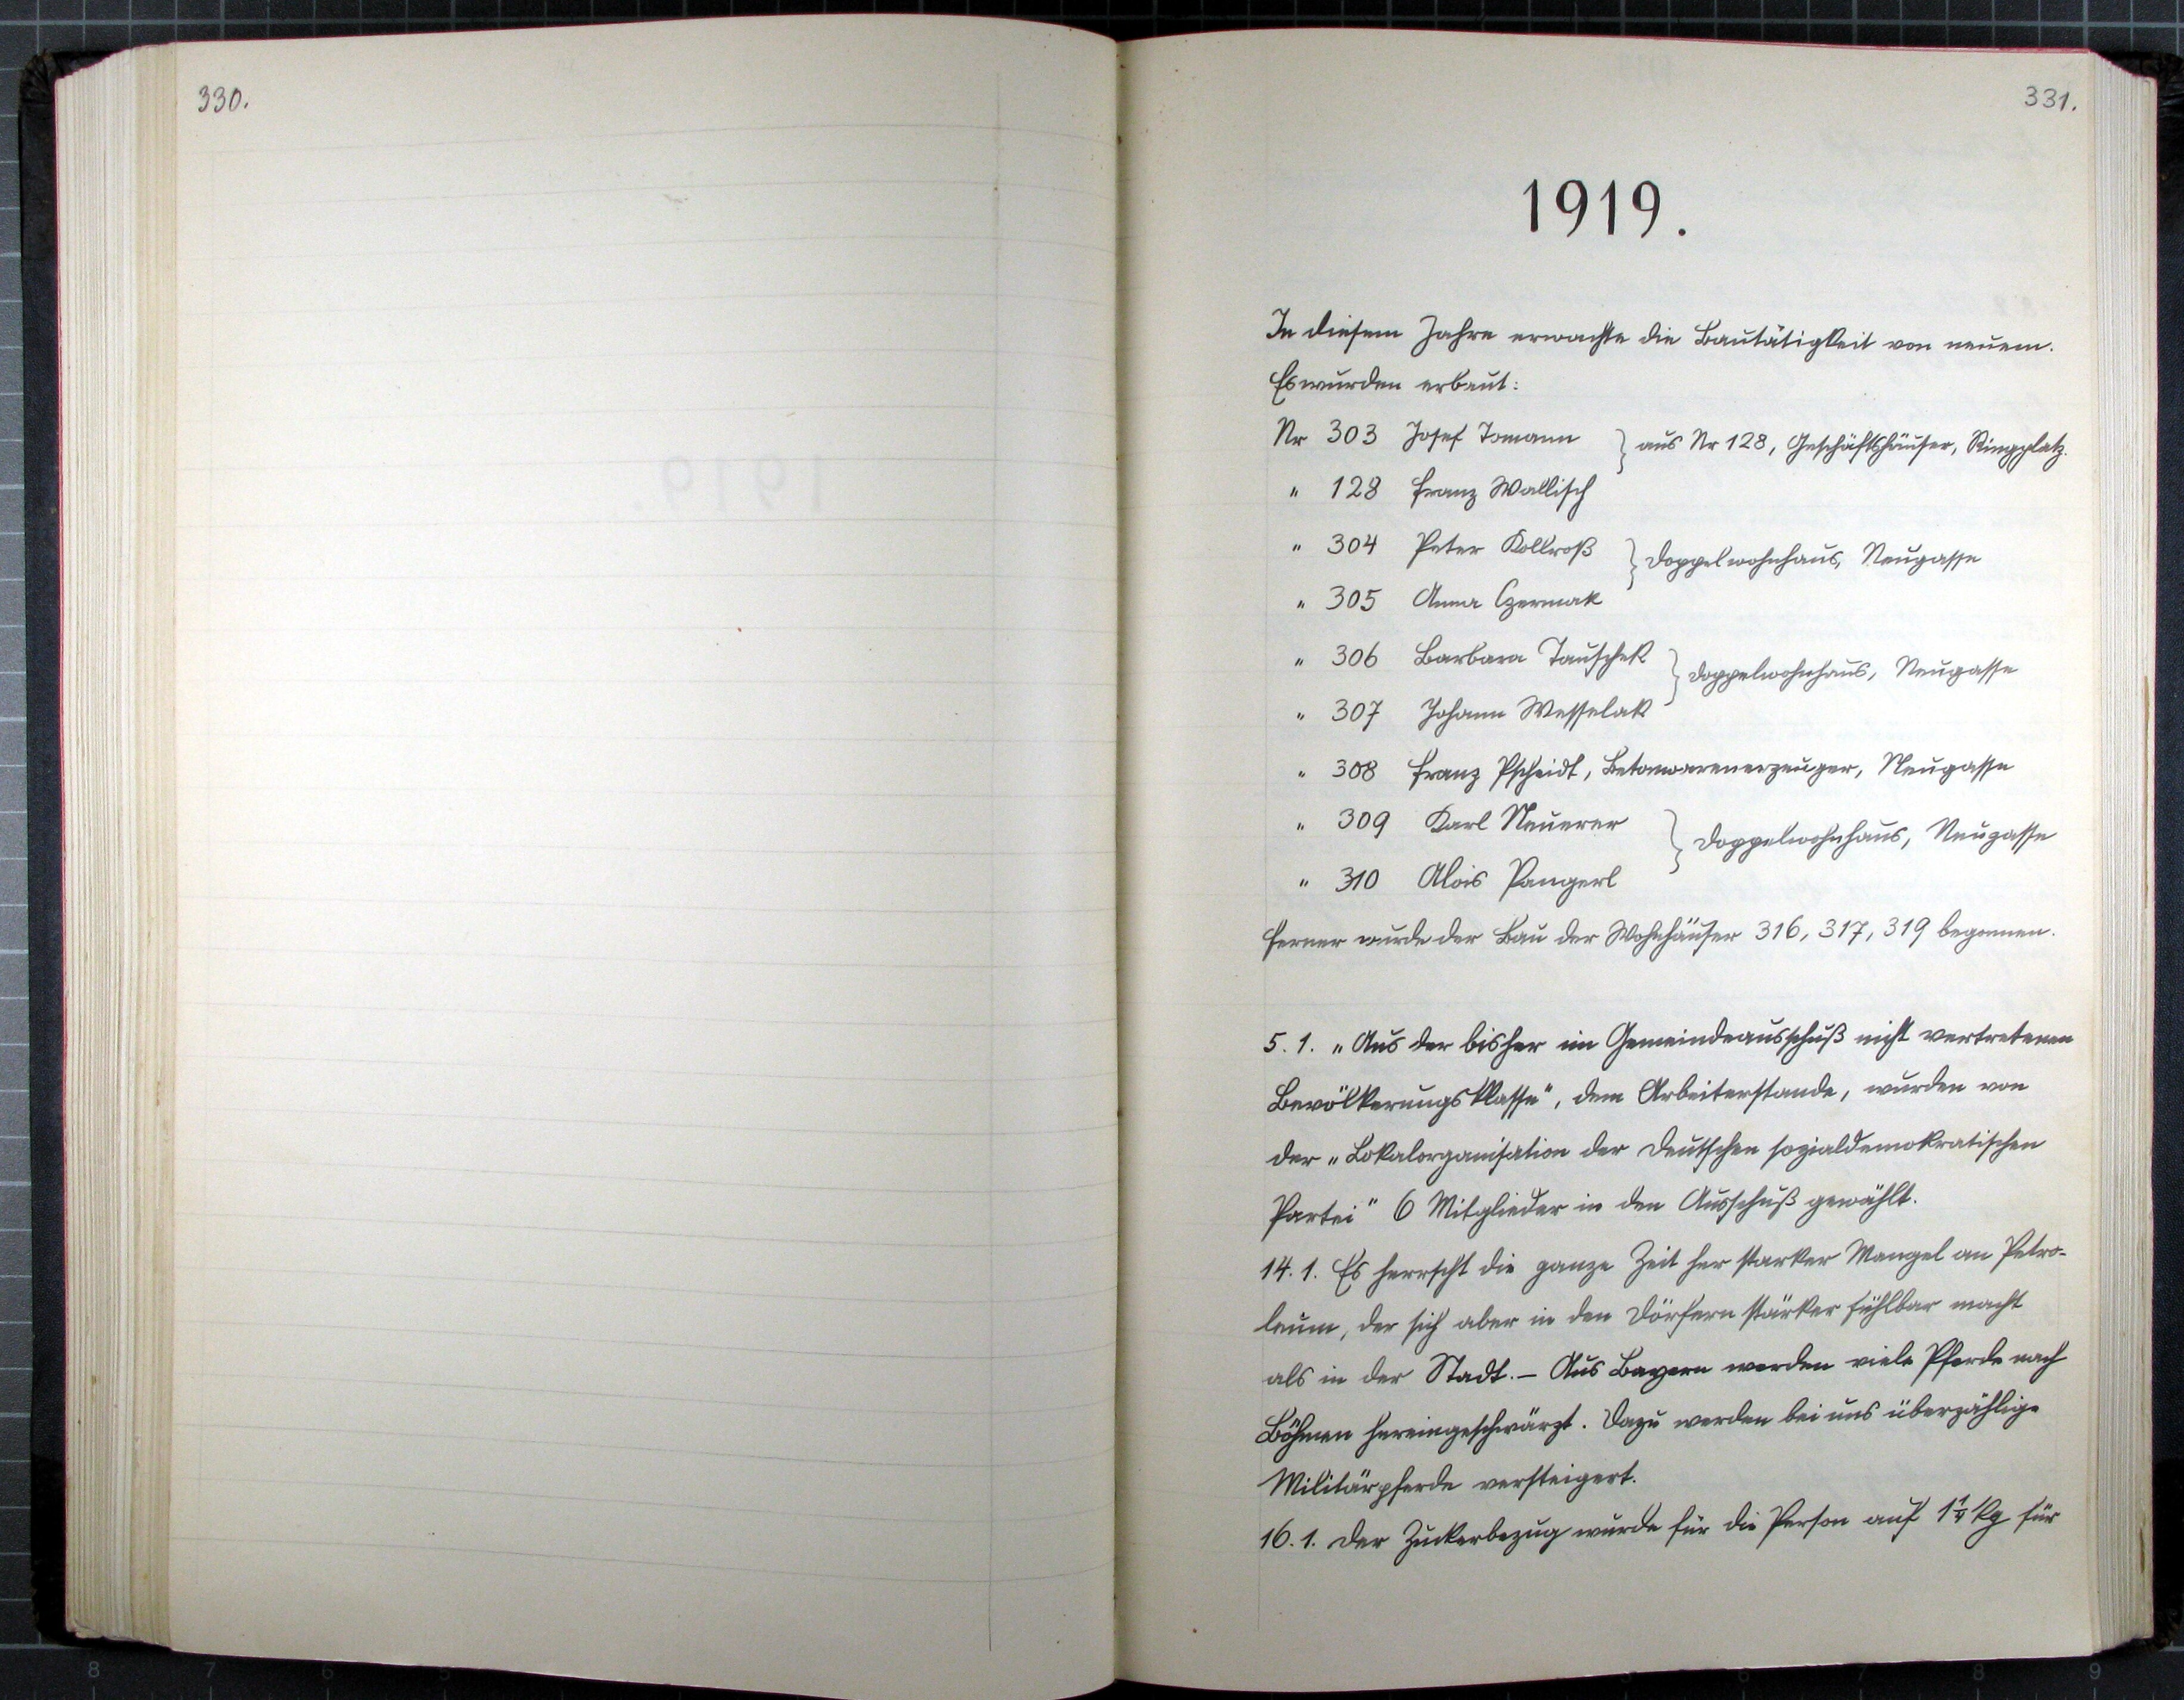 330.
331.
1919.
In diesem Jahre erwachte die Bautätigkeit von neuem.
Es wurden erbaut:
Nr 303 Josef Tomann } aus Nr 128, Geschäftshäuser, Ringplatz.
" 128 Franz Wallisch
" 304 Peter Kollroß } Doppelwohnhaus, Neugasse
" 305 Anna Czermak
" 306 Barbara Tauschek } Doppelwohnhaus, Neugasse
" 307 Johann Wesselak
" 308 Franz Pscheidt, Betonwarenerzeuger, Neugasse
" 309 Karl Neuerer } Doppelwohnhaus, Neugasse
" 310 Alois Pangerl
Ferner wurde der Bau der Wohnhäuser 316, 317, 319 begonnen.
5. 1. „Aus der bisher im Gemeindeausschuß nicht vertretenen
Bevölkerungsklasse", dem Arbeiterstande, wurden von
der „Lokalorganisation der Deutschen sozialdemokratischen
Partei" 6 Mitglieder in den Ausschuß gewählt.
14. 1. Es herrscht die ganze Zeit her starker Mangel an Petro-
leum, der sich aber in den Dörfern stärker fühlbar macht
als in der Stadt. – Aus Bayern werden viele Pferde nach
Böhmen hereingeschwärzt. Dazu werden bei uns überzählige
Militärpferde versteigert.
16. 1. Der Zuckerbezug wurde für die Person auf 1 1/4 kg für